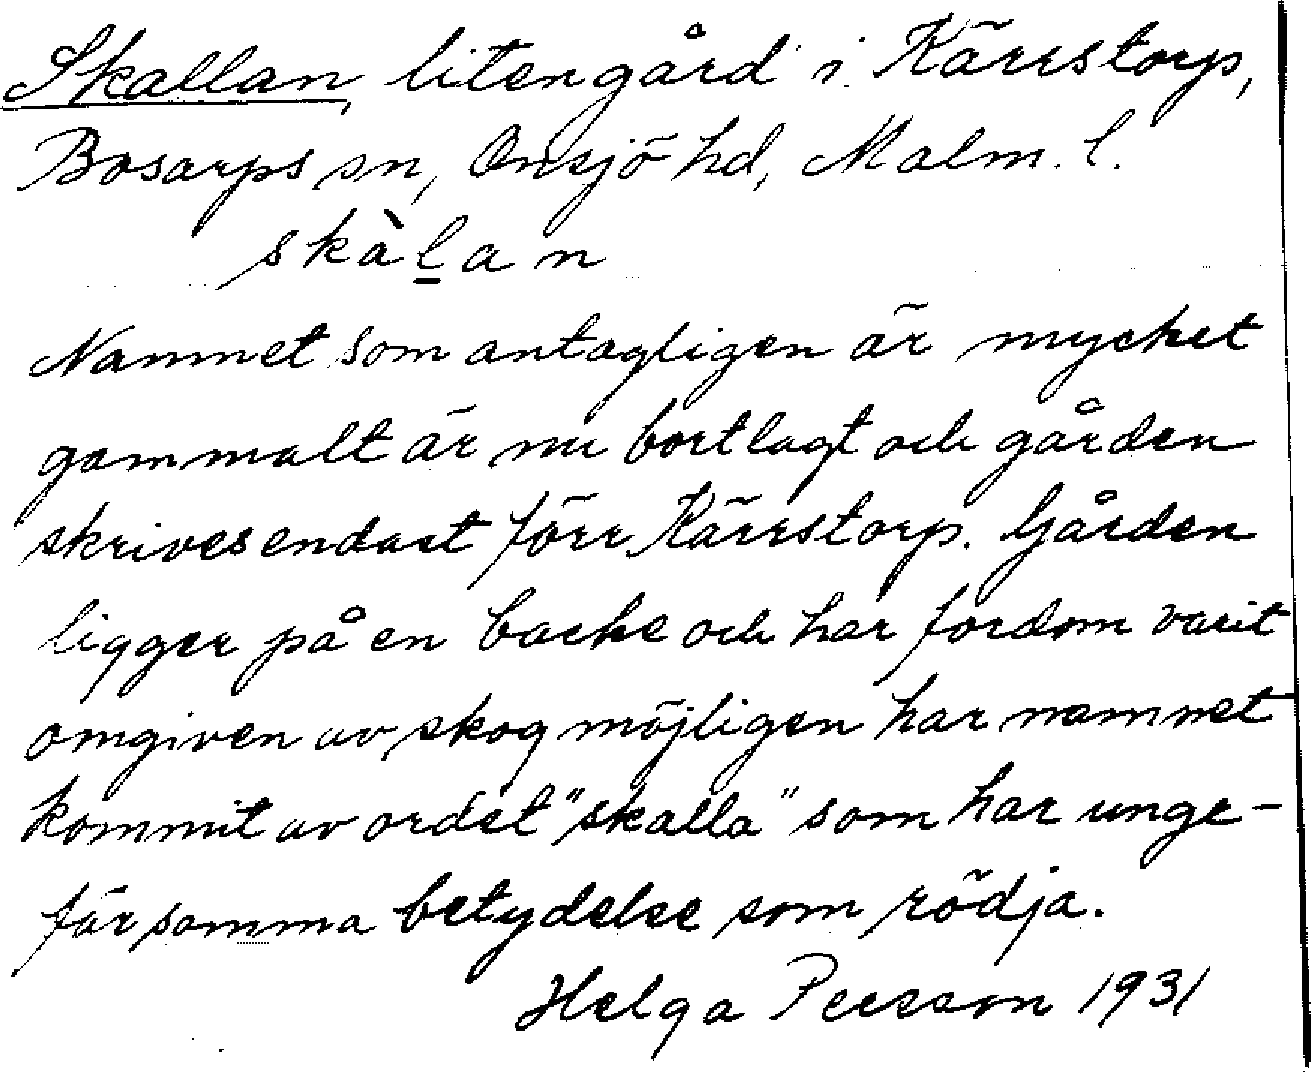 Skallan, liten gård i Kärrstorp,
Bosarps sn, Onsjö hd, Malm. l.
skàlan
Namnet som antagligen är mycket
gammalt är nu bortlagt och gården
skrives endast förr Kärrstorp. Gården
ligger på en backe och har fordom varit
omgiven av skog möjligen har namnet
kommit av ordet "skalla" som har unge-
fär samma betydelse som rödja.
Helga Persson 1931